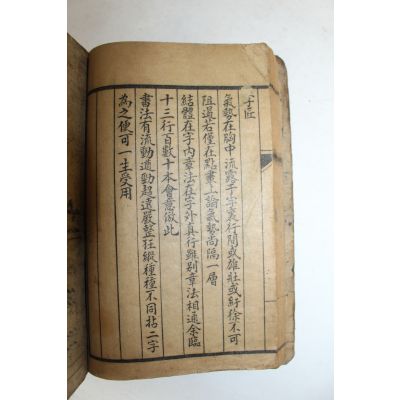 字匠
氣勢在胸中流露于字裏行間或雄壯或紆徐不可
阻遏若僅在點畫上論氣勢尚隔一層
結體在字内章法在字外真行雖别章法相通余臨
十三行百數十本會意倣此
書法有流動遒勁超遠嚴整狂縱種種不同拈二字
為之便可一生受用